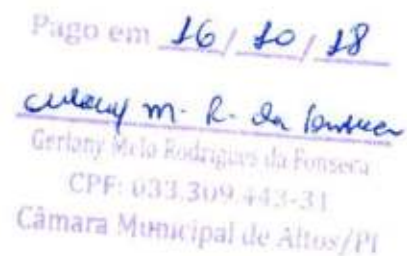 Pago em 16/10/18
m. R. da Fonseca
Gerlany Melo Rodrigues da Fonseca
CPF: 033.309.443-31
Câmara Municipal de Altos/PI